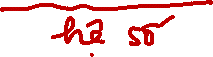 hệ số